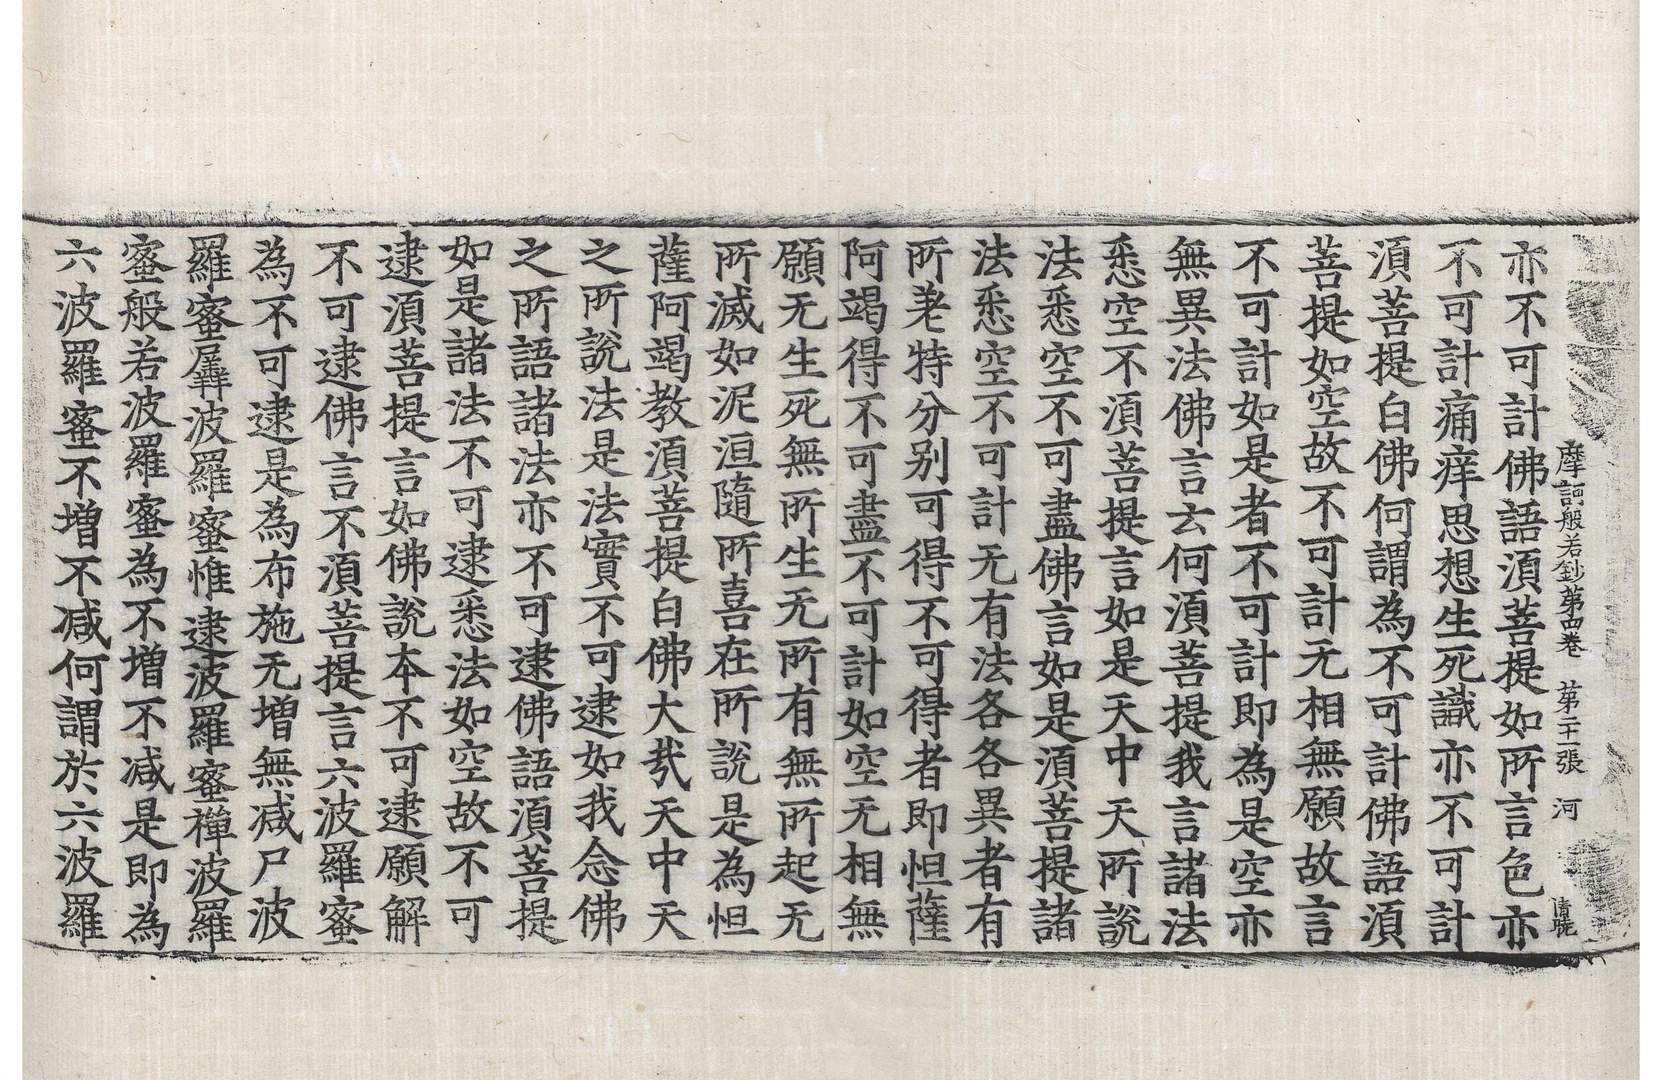 摩訶般若鈔第四卷　第二十一張　河
亦不可計佛語湏菩提如所言色亦
不可計痛痒思想生死識亦不可計
湏菩提白佛何謂為不可計佛語湏
菩提如空故不可計无相無願故言
不可計如是者不可計即為是空亦
無異法佛言云何湏菩提我言諸法
悉空不湏菩提言如是天中天所說
法悉空不可盡佛言如是湏菩提諸
法悉空不可計无有法各各異者有
所著特分別可得不可得者即怛薩
阿竭得不可盡不可計如空无相無
願无生死無所生无所有無所起无
所滅如泥洹隨所喜在所說是為怛
薩阿竭教湏菩提白佛大㢤天中天
之所說法是法實不可逮如我念佛
之所語諸法亦不可逮佛語湏菩提
如是諸法不可逮悉法如空故不可
逮湏菩提言如佛說本不可逮願解
不可逮佛言不湏菩提言六波羅蜜
為不可逮是為布施无增無減尸波
羅蜜羼波羅蜜惟逮波羅蜜禪波羅
蜜般若波羅蜜為不增不減是即為
六波羅蜜不增不減何謂於六波羅